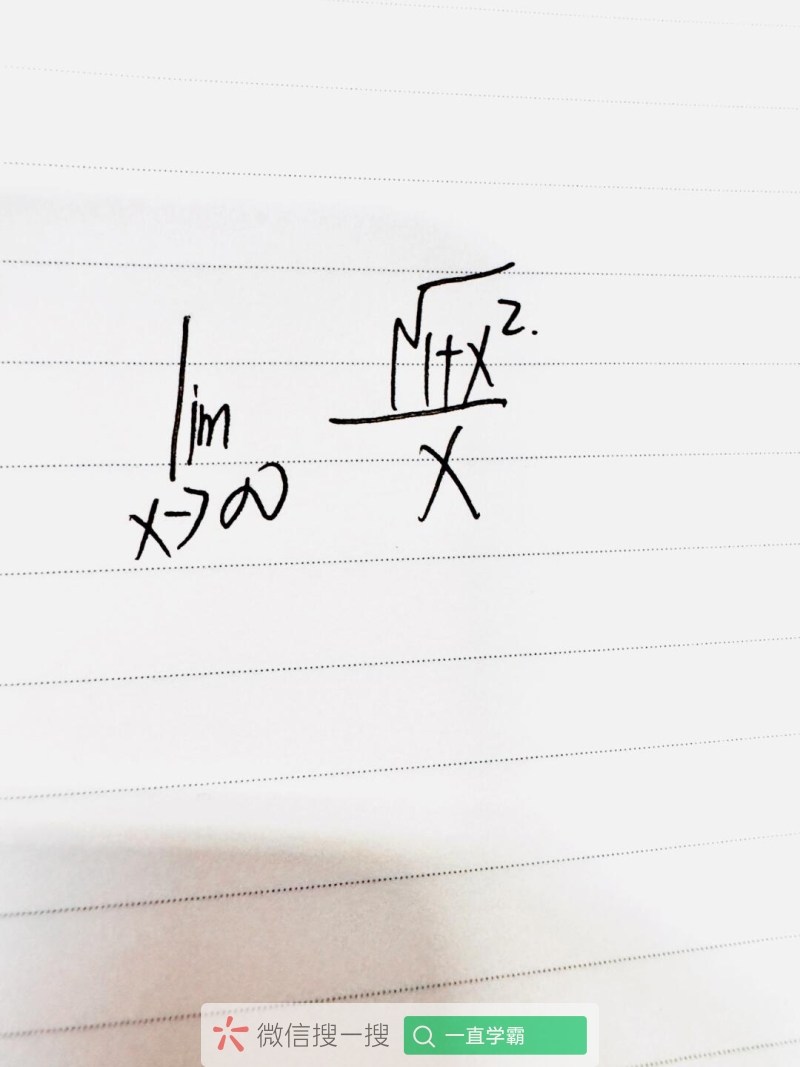 lim √1+x².
x→∞ x
微信搜一搜 一直学霸